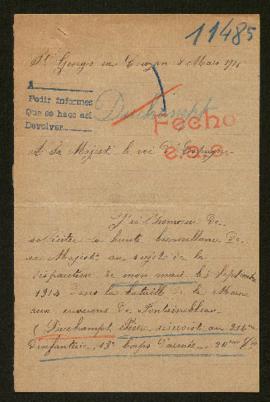 11485
St Georges en Couzan 8 Mars 1915
A
Pedir informes
Que se haga así
Devolver
Duchampt
Fecho
A Sa Majesté le roi d'Espagne
J'ai l'honneur de
solliciter la haute bienveillance de
sa Majesté au sujet de la
disparition de mon mari le 6 Septembre
1914 dans la bataille de la Marne
aux environs de Fontainebleau
(Duchampt, réserviste au 216me
d'infanterie, 13e corps d'armée, 20me Cie